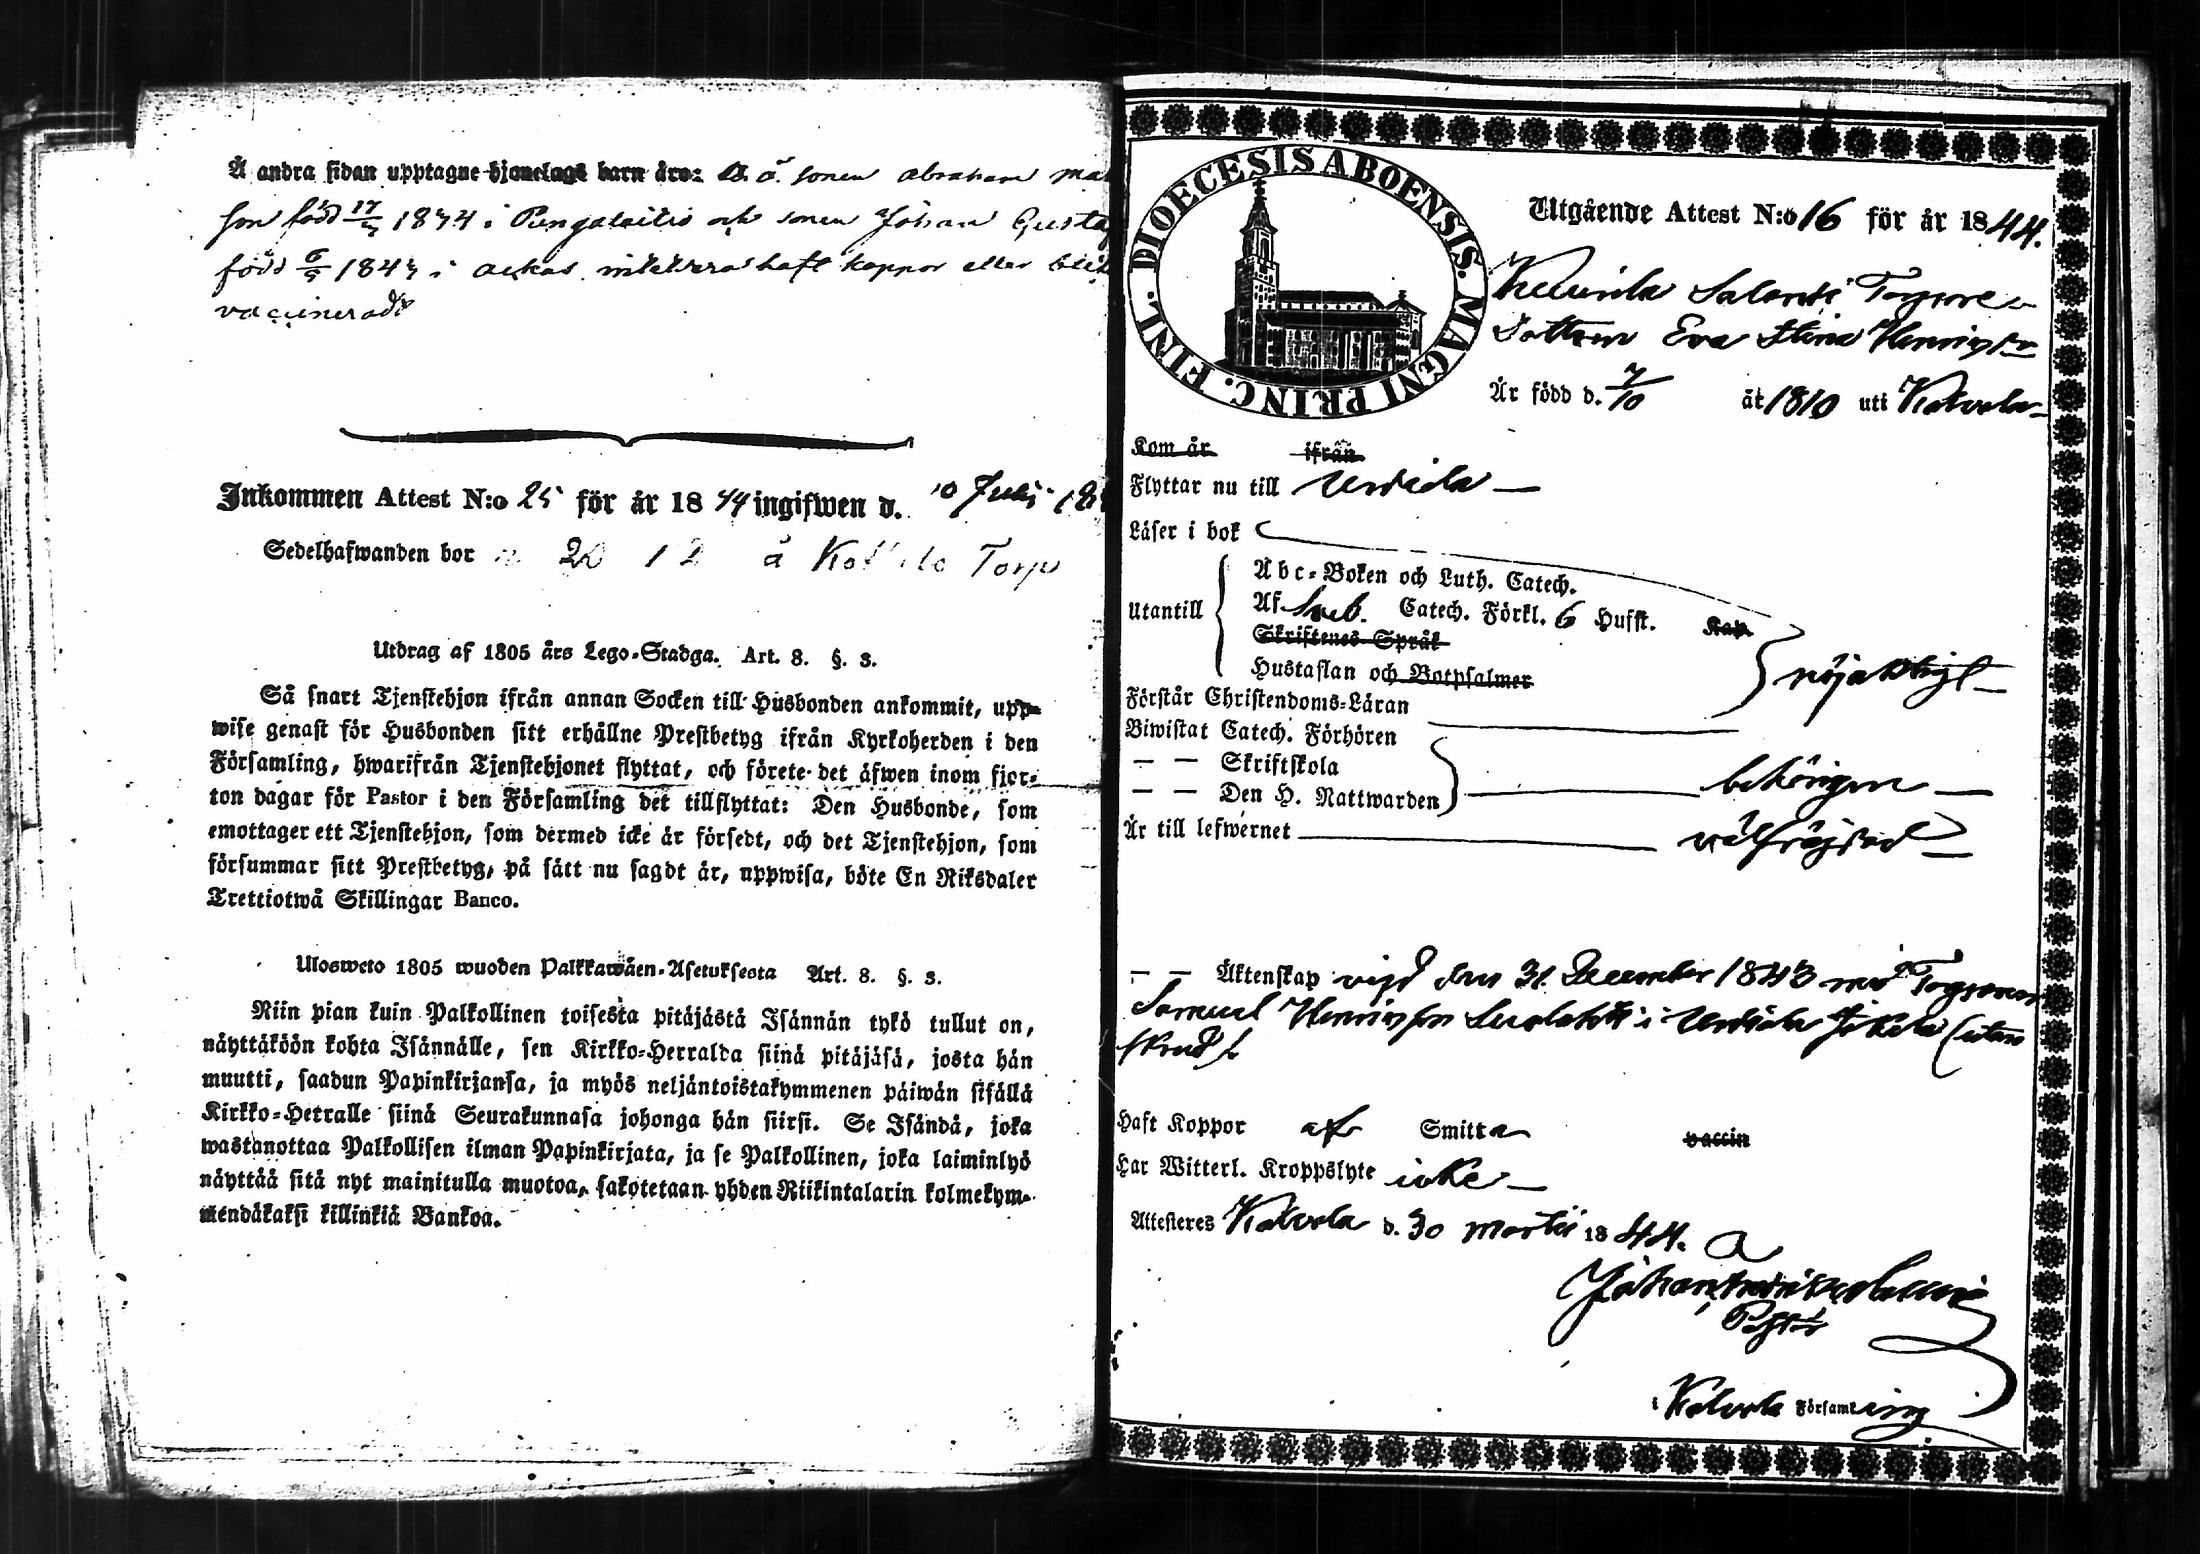 Å andra sidan upptagne hjonelags barn äro: sonen Abraham
son född 17/ 1844 i och sonen Johan Gusta
född 6/ 184 i haft koppor eller
vaccinerade
Inkommen Attest N:o 25 för år 1844 ingifwen d. 10 Juli 18
Sedelhafwanden bor å Torp
Utdrag af 1805 års Lego-Stadga. Art. 8. §. 3.
Så snart Tjenstehjon ifrån annan Socken till Husbonden ankommit, upp-
wise genast för Husbonden sitt erhållne Prestbetyg ifrån Kyrkoherden i den
Församling, hwarifrån Tjenstehjonet flyttat, och förete det äfwen inom fjor-
ton dagar för Pastor i den Församling det tillflyttat: Den Husbonde, som
emottager ett Tjenstehjon, som dermed icke är försedt, och det Tjenstehjon, som
försummar sitt Prestbetyg, på sätt nu sagdt är, uppwisa, böte En Riksdaler
Trettiotwå Skillingar Banco.
Ulosweto 1805 wuoden Palkkawäen-Asetuksesta Art. 8. §. 3.
Niin pian kuin Palkollinen toisesta pitäjästä Isännän tykö tullut on,
näyttäköön kohta Isännälle, sen Kirkko-Herralda siinä pitäjäsä, josta hän
muutti, saadun Papinkirjansa, ja myös neljäntoistakymmenen päiwän sisällä
Kirkko-Herralle siinä Seurakunnasa johonga hän siirsi. Se Isändä, joka
wastanottaa Palkollisen ilman Papinkirjata, ja se Palkollinen, joka laiminlyö
näyttää sitä nyt mainitulla muotoa, sakotetaan yhden Riikintalarin kolmekym-
mendäkaksi killinkiä Bankoa.
DIOECESIS ABOENSIS. MAGNI PRINC. FINL.
Utgående Attest N:o 16 för år 1844.
Dottren Eva Stina Henriksdr
Är född d. 7/10 år 1810 uti Kalvola
Kom år ifrån
Flyttar nu till Urdiala
Läser i bok
Abc-Boken och Luth. Catech.
Utantill
Af Sveb. Catech. Förkl. 6 Hufst. Kap.
Skriftenes Språk
Hustaflan och Botpsalmer
nöjaktigt
Förstår Christendoms-Läran
Biwistat Catech. Förhören
— — Skriftskola
— — Den H. Nattwarden
behörigen
Är till lefwernet välfräjdad
— — Äktenskap vigd den 31 December 1843 med Torparen
Samuel Henriksson i Urdiala (utan
skrud).
Haft Koppor af Smitta vaccin
Har Witterl. Kroppslyte icke
Attesteres Kalvola d. 30 Martii 1844.
Johan
Pastor
i Kalvola Församling